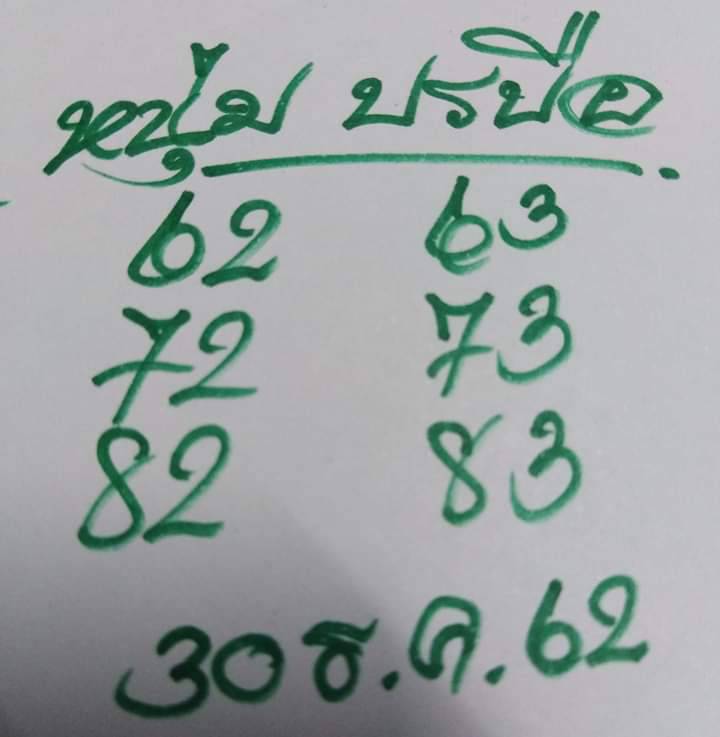 หนุ่ม บรบือ
62 63
72 73
82 83
30 ธ.ค.62